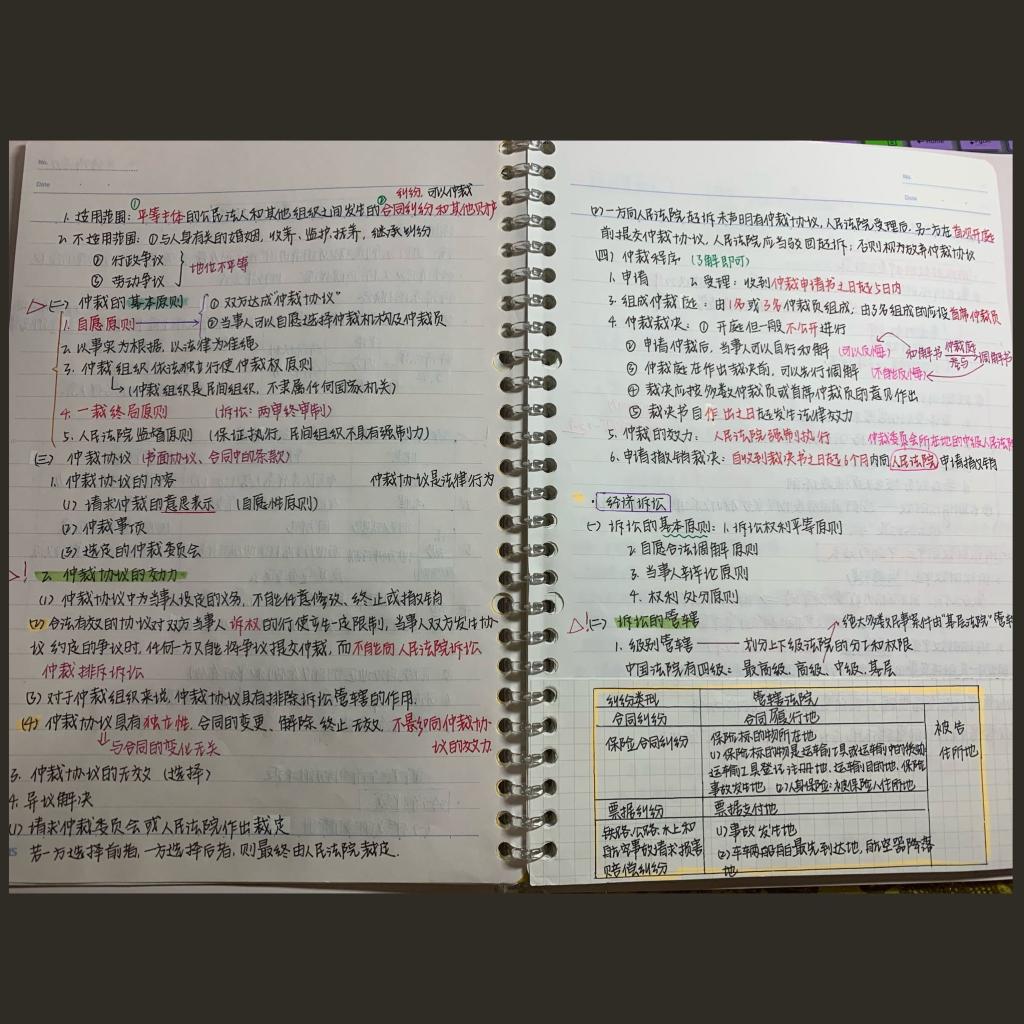 No.
Date
纠纷,可以仲裁
1. 适用范围:①平等主体的公民法人和其他组织之间发生的②合同纠纷和其他财产
2. 不适用范围:①与人身有关的婚姻,收养、监护、抚养、继承纠纷
② 行政争议
③ 劳动争议 } 地位不平等
(二) 仲裁的基本原则 ① 双方达成“仲裁协议”
1. 自愿原则 ② 当事人可以自愿选择仲裁机构及仲裁员
2. 以事实为根据,以法律为准绳
3. 仲裁组织依法独立行使仲裁权原则
(仲裁组织是民间组织,不隶属任何国家机关)
4. 一裁终局原则 (诉讼:两审终审制)
5. 人民法院监督原则 (保证执行,民间组织不具有强制力)
(三) 仲裁协议 (书面协议、合同中的条款)
1. 仲裁协议的内容 仲裁协议是法律行为
(1) 请求仲裁的意思表示 (自愿性原则)
(2) 仲裁事项
(3) 选定的仲裁委员会
! 2. 仲裁协议的效力
(1) 仲裁协议中为当事人设定的义务,不能任意修改、终止或撤销
(2) 合法有效的协议对双方当事人诉权的行使产生一定限制,当事人双方发生协
议约定的争议时,任何一方只能将争议提交仲裁,而不能向人民法院诉讼
仲裁排斥诉讼
(3) 对于仲裁组织来说,仲裁协议具有排除诉讼管辖的作用.
(4) 仲裁协议具有独立性,合同的变更、解除、终止、无效,不影响仲裁协
议的效力
与合同的变化无关
3. 仲裁协议的无效 (选择)
4. 异议解决
(1) 请求仲裁委员会或人民法院作出裁定
若一方选择前者,一方选择后者,则最终由人民法院裁定.
No.
Date
(2) 一方向人民法院起诉未声明有仲裁协议,人民法院受理后,另一方在首次开庭
前提交仲裁协议,人民法院应当驳回起诉;否则视为放弃仲裁协议
四) 仲裁程序 (了解即可)
1. 申请 2. 受理:收到仲裁申请书之日起5日内
3. 组成仲裁庭:由1名或3名仲裁员组成,由3名组成的应设首席仲裁员
4. 仲裁裁决:① 开庭但一般不公开进行
② 申请仲裁后,当事人可以自行和解 (可以反悔) 和解书 仲裁庭参与 调解书
③ 仲裁庭在作出裁决前,可以先行调解 (不能反悔)
④ 裁决应按多数仲裁员或首席仲裁员的意见作出
⑤ 裁决书自作出之日起发生法律效力
5. 仲裁的效力:人民法院强制执行 仲裁委员会所在地的中级人民法院
6. 申请撤销裁决:自收到裁决书之日起6个月内向人民法院申请撤销
经济诉讼
(一) 诉讼的基本原则:1. 诉讼权利平等原则
2. 自愿合法调解原则
3. 当事人辩论原则
4. 权利处分原则
! (二) 诉讼的管辖 绝大多数民事案件由“基层法院”管辖
1. 级别管辖 —— 划分上下级法院的分工和权限
中国法院有四级:最高级、高级、中级、基层
纠纷类型 管辖法院
合同纠纷 合同履行地
保险合同纠纷 保险标的物所在地
(1) 保险标的物是运输工具或运输中的货物
运输工具登记注册地、运输目的地、保险
事故发生地 (2) 人身保险:被保险人住所地
票据纠纷 票据支付地
铁路、公路、水上和航空事故请求损害赔偿纠纷 (1) 事故发生地
(2) 车辆船舶最先到达地,航空器降落地
被告住所地